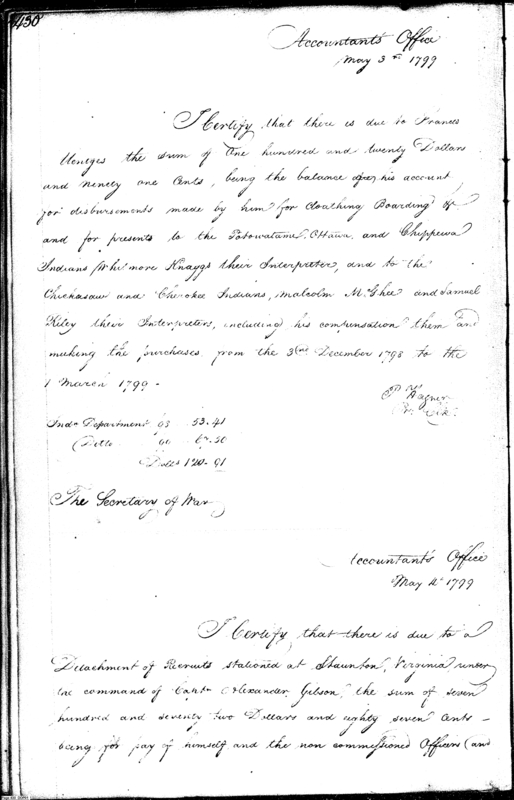 430
Accountants Office
May 3d 1799
I Certify that there is due to Frances
the sum of One hundred and twenty Dollars
and ninety one Cents, being the balance of his account
for disbursements made by him for Cloathing Boarding &c
and for presents to the Potowatame, Ottawa and Chippewa
Indians, Whitmore Knaggs their Interpreter, and to the
Chickasaw and Cherokee Indians, Malcolm McGhee and Samuel
Riley their Interpreters, including his compensation them and
making the purchases from the 3d December 1798 to the
1 March 1799.
P. Wagner
Inda Department 53.41
Ditto 67.50
Dolls 120.91
The Secretary of War
Accountant's Office
May 4th 1799
I Certify that there is due to a
Detachment of Recruits stationed at Staunton, Virginia under
the command of Captn Alexander Gibson, the sum of seven
hundred and seventy two Dollars and eighty seven Cents –
being for pay of himself and the non commissioned Officers and